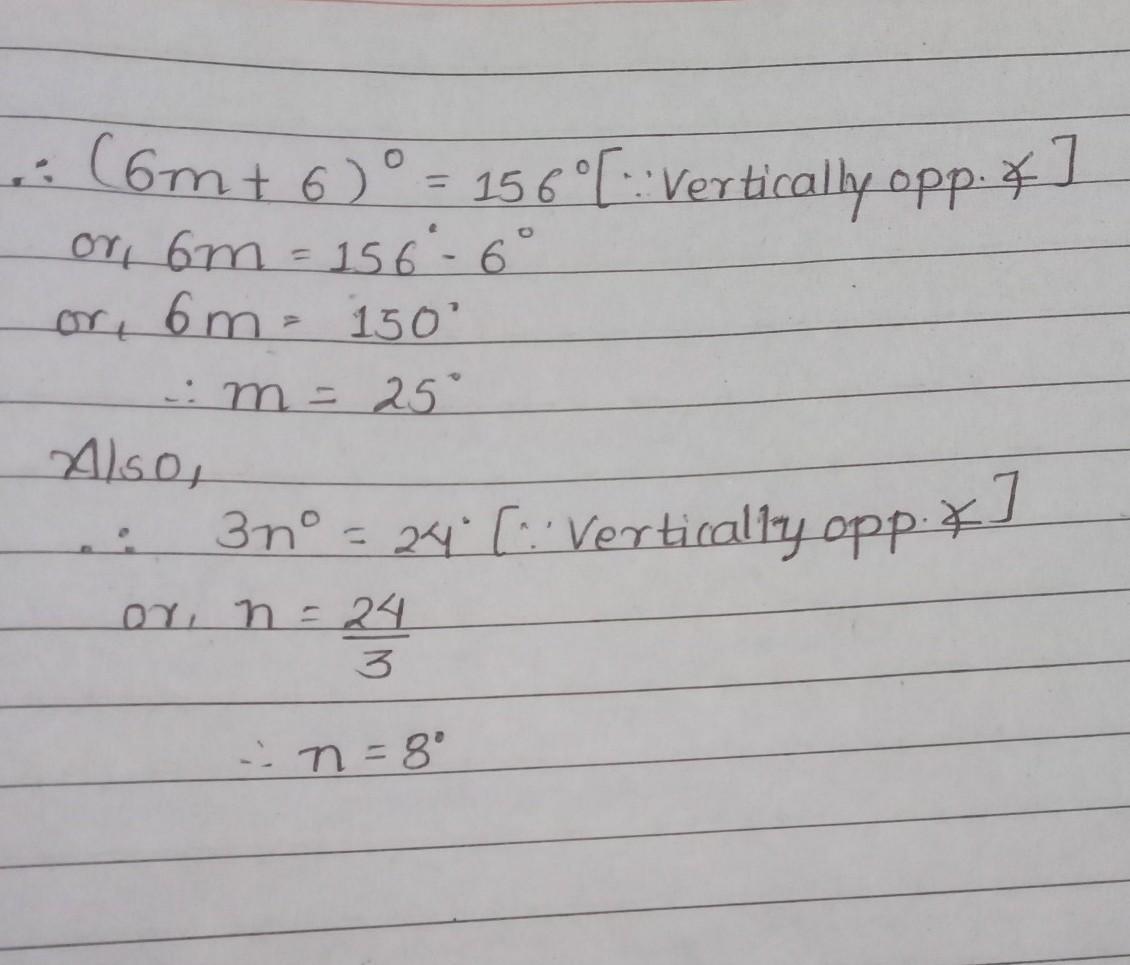 ∴ (6m + 6)° = 156° [∵ Vertically opp. ∡]
or, 6m = 156° - 6°
or, 6m = 150°
∴ m = 25°
Also,
∴ 3n° = 24° [∵ Vertically opp. ∡]
or, n = 24/3
∴ n = 8°